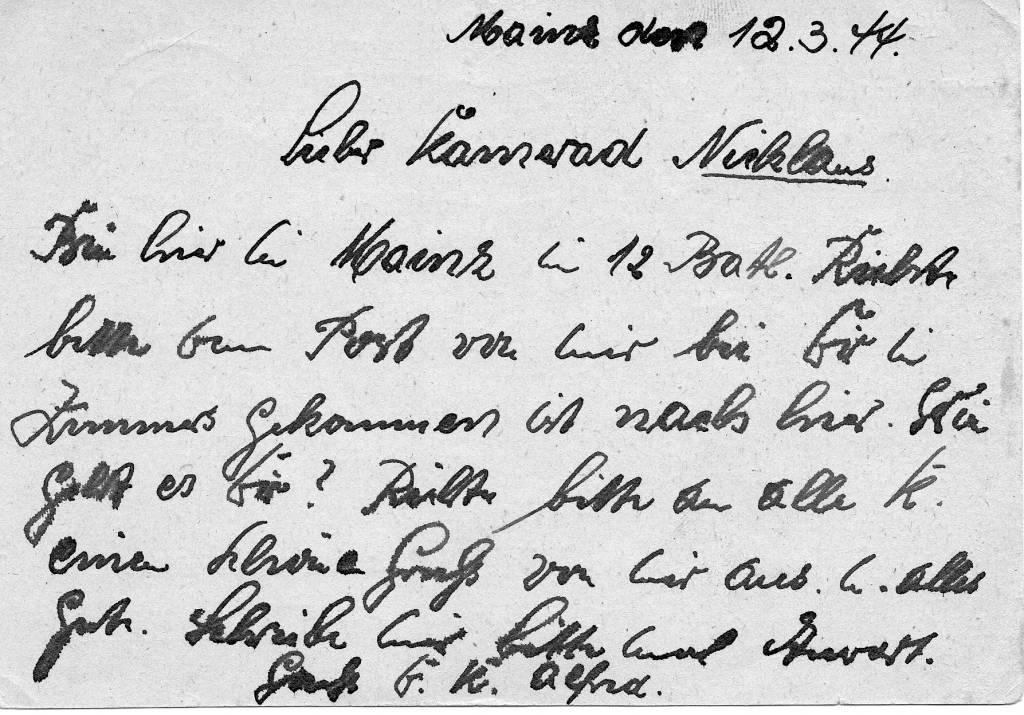 Mainz den 12.3.44.
Lieber Kamerad Nicklaus.
Bin hier in Mainz in 12 Batl. Richte
bitte Post von mir bei Dir in
Zimmer gekommen ist nach hier. Wie
geht es Dir? Richte bitte an alle K.
einen schöne Gruß von mir aus. u. alles
Gute. Schreibe mir bitte mal Anwort.
Gruß D. K. Alfred.